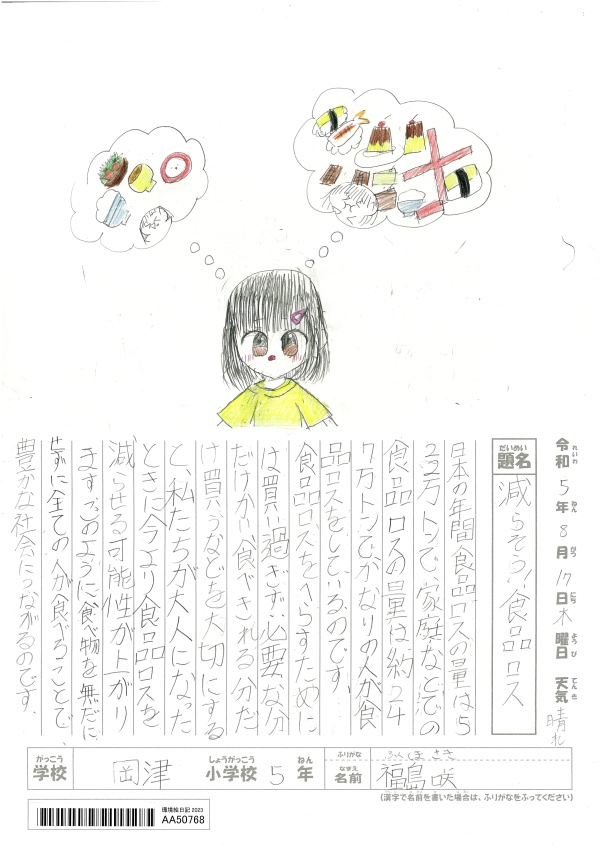 令和5年8月17日木曜日 天気 晴れ
れいわ ねん がつ にち ようび てんき
だいめい
題名 減らそう!食品ロス
日本の年間食品ロスの量は5
22万トンで、家庭などでの
食品ロスの量は約24
7万トンでかなりの人が食
品ロスをしているのです。
食品ロスをへらすために
は買い過ぎず、必要な分
だけかい、食べきれる分だ
け買うなどを大切にする
と、私たちが大人になった
ときに今より食品ロスを
減らせる可能性が上がり
ます。このように食べ物を無だに
せずに全ての人が食べることで、
豊かな社会につながるのです。
がっこう しょうがっこう ねん
学校 岡津 小学校 5年
ふりがな ふくしま さき
なまえ
名前 福島 咲
(漢字で名前を書いた場合は、ふりがなをふってください)
環境絵日記 2023
AA50768